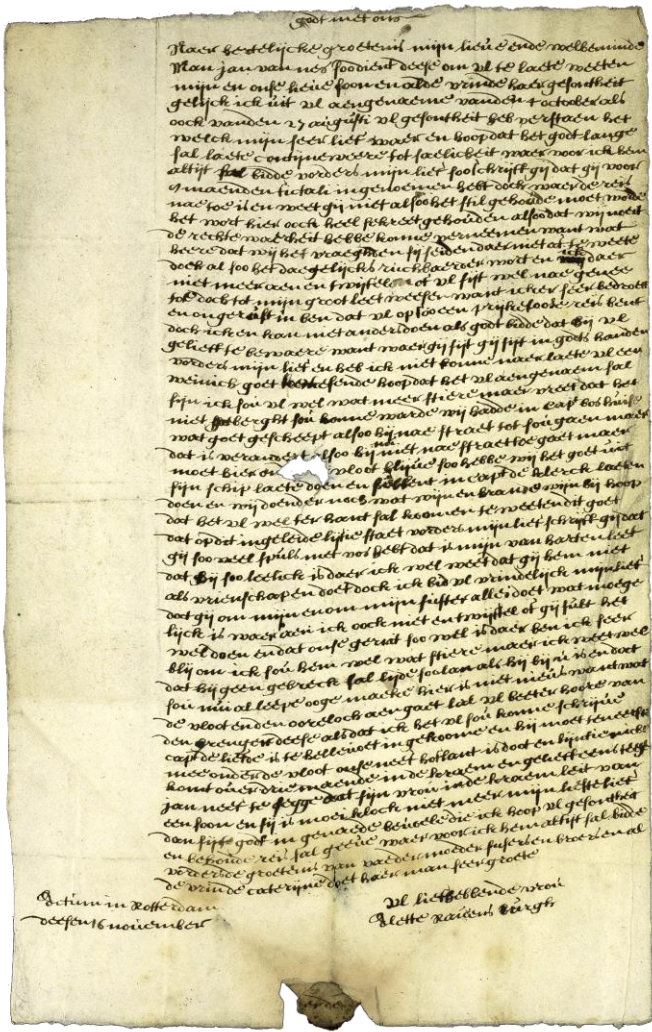 godt met ons
Naer hertelijcke groetenis mijn lieve ende welbeminde
Man jan van nes soo dient deese om vl te laete weeten
mijn en onse lieve soon en alde vrinde haer gesontheit
gelijck ick uit vl aengenaeme vanden 4 october als
oock vanden 27 augusti vl gesontheit heb verstaen het
welck mijn seer lief waer en hoop dat het godt lange
sal laete contijneweere tot saelicheit waer voor ick hem
altijt sal bidde vorders mijn lief soo schrijft gij dat gij voor
maenden fictali ingenoemen hebt doch waer de reis
nae toe is en weet gij niet alsoo het stil gehoude moet worde
het wort hier oock heel sekreet gehouden alsoo dat wij niet
de rechte waerheit hebbe konne verneemen want wat
heere dat wij het vraeghden sij seiden daer niet af te weete
doch al soo het daegelijcks ruchbaerder wort en ick daer
niet meer aen en twijfelen of vl sijt wel nae genee
toe doch tot mijn groot leet weesen want ick er seer bedroeft
en ongerust in ben dat vl op soo een prijkeloose reis bent
doch ick en kan niet anders doen als godt bidde dat hij vl
gelieft te bewaere want waer gij sijt gij sijt in gods handen
vorders mijn lief en heb ick niet konne naer laete vl een
weinich goet sende hoop dat het vl aengenaem sal
sijn ick sou vl wel wat meer stiere maer vreet dat het
niet geberght sou konne warde wij hadde in cap bos huise
wat goet gescheept alsoo hij nae straet tot sou gaen maer
dat is verandert alsoo hij niet nae straet toe gaet maer
moet hier en vloot blijve soo hebbe wij het goet uit
sijn schip laete doen en sullent in capt de klerck laeten
doen en wij doender noch wat wijn en brande wijn bij hoop
dat het vl wel ter hant sal koomen te weeten dit goet
dat op dit ingeleide lijstie staet vorders mijn lief schrijft gij dat
gij soo veel spuls met vos hebt dat is mijn van harten leet
dat hij soo leelick is daer ick wel weet dat gij hem niet
als vrienschap en doet doch ick bid vl vrindelijck mijn lief
dat gij om mijn en om mijn suster allei doet wat moege
lijck is waer aen ick oock niet en twijfel of gij sult het
wel doen en dat onse gerrit soo wel is daer ben ick seer
blij om ick sou hem wel wat stiere maer ick weet wel
dat hij geen gebreck sal lijde soo lan als hij bij u is en dat
sou mij al leepe ooge maeke hier is niet nieus want wat
de vloot enden ooreloch aengaet sal vl beeter hoore van
den brenger deese als dat ick het vl sou konne schrijve
capt de liefde is te hellevoet ingekoome en hij moet teneerste
mee onder de vloot onse neef hollant is doot en lijntie nicht
komt over drie maende in de kraem en gelieft eens teege
jan neef te segge dat sijn vrou inde kraem leit van
een soon en sij is moei klock niet meer mijn liefste lief
dan sijt godt in genaede bevoole die ick hoop vl gesontheit
en behoude reis sal geeve waer voor ick hem altijt sal bidde
vorders de groetenis van vaeder moeder susters en broers en al
de vrinde caterijne doet haer man seer groete
vl liefhebbende vrou
Alette Raisens burgh
Actum in Rotterdam
deesen 16 november